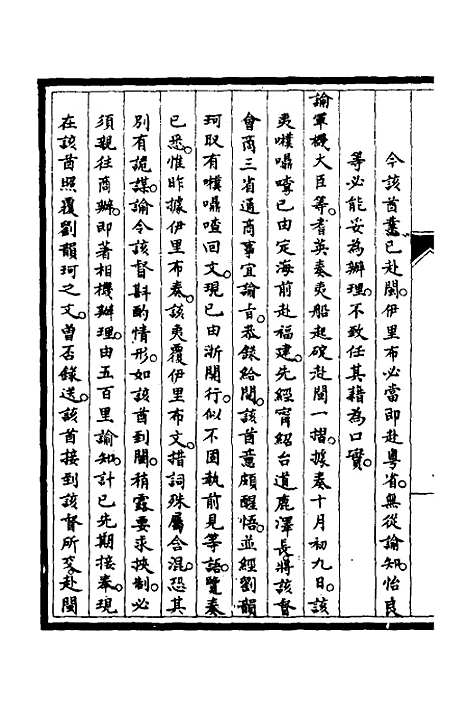 今該酋業已赴閩。伊里布必當即赴粵省。無從諭知。怡良
等必能妥為辦理。不致任其藉為口實。
諭軍機大臣等。耆英奏夷船起碇赴閩一摺。據奏十月初九日。該
夷㗎囁喳已由定海前赴福建。先經寧紹台道鹿澤長將該督
會商三省通商事宜諭旨。恭錄給閱。該酋意頗醒悟。並經劉韻
珂取有㗎囁喳回文。現已由浙開行。似不固執前見等語。覽奏
已悉。惟昨據伊里布奏。該夷覆伊里布文。措詞殊屬含混。恐其
別有詭謀。諭令該督斟酌情形。如該酋到閩。稍露要求挾制。必
須親往商辦。即著相機辦理。由五百里諭知。計已先期接奉。現
在該酋照覆劉韻珂之文。曾否錄送。該酋接到該督所發赴閩